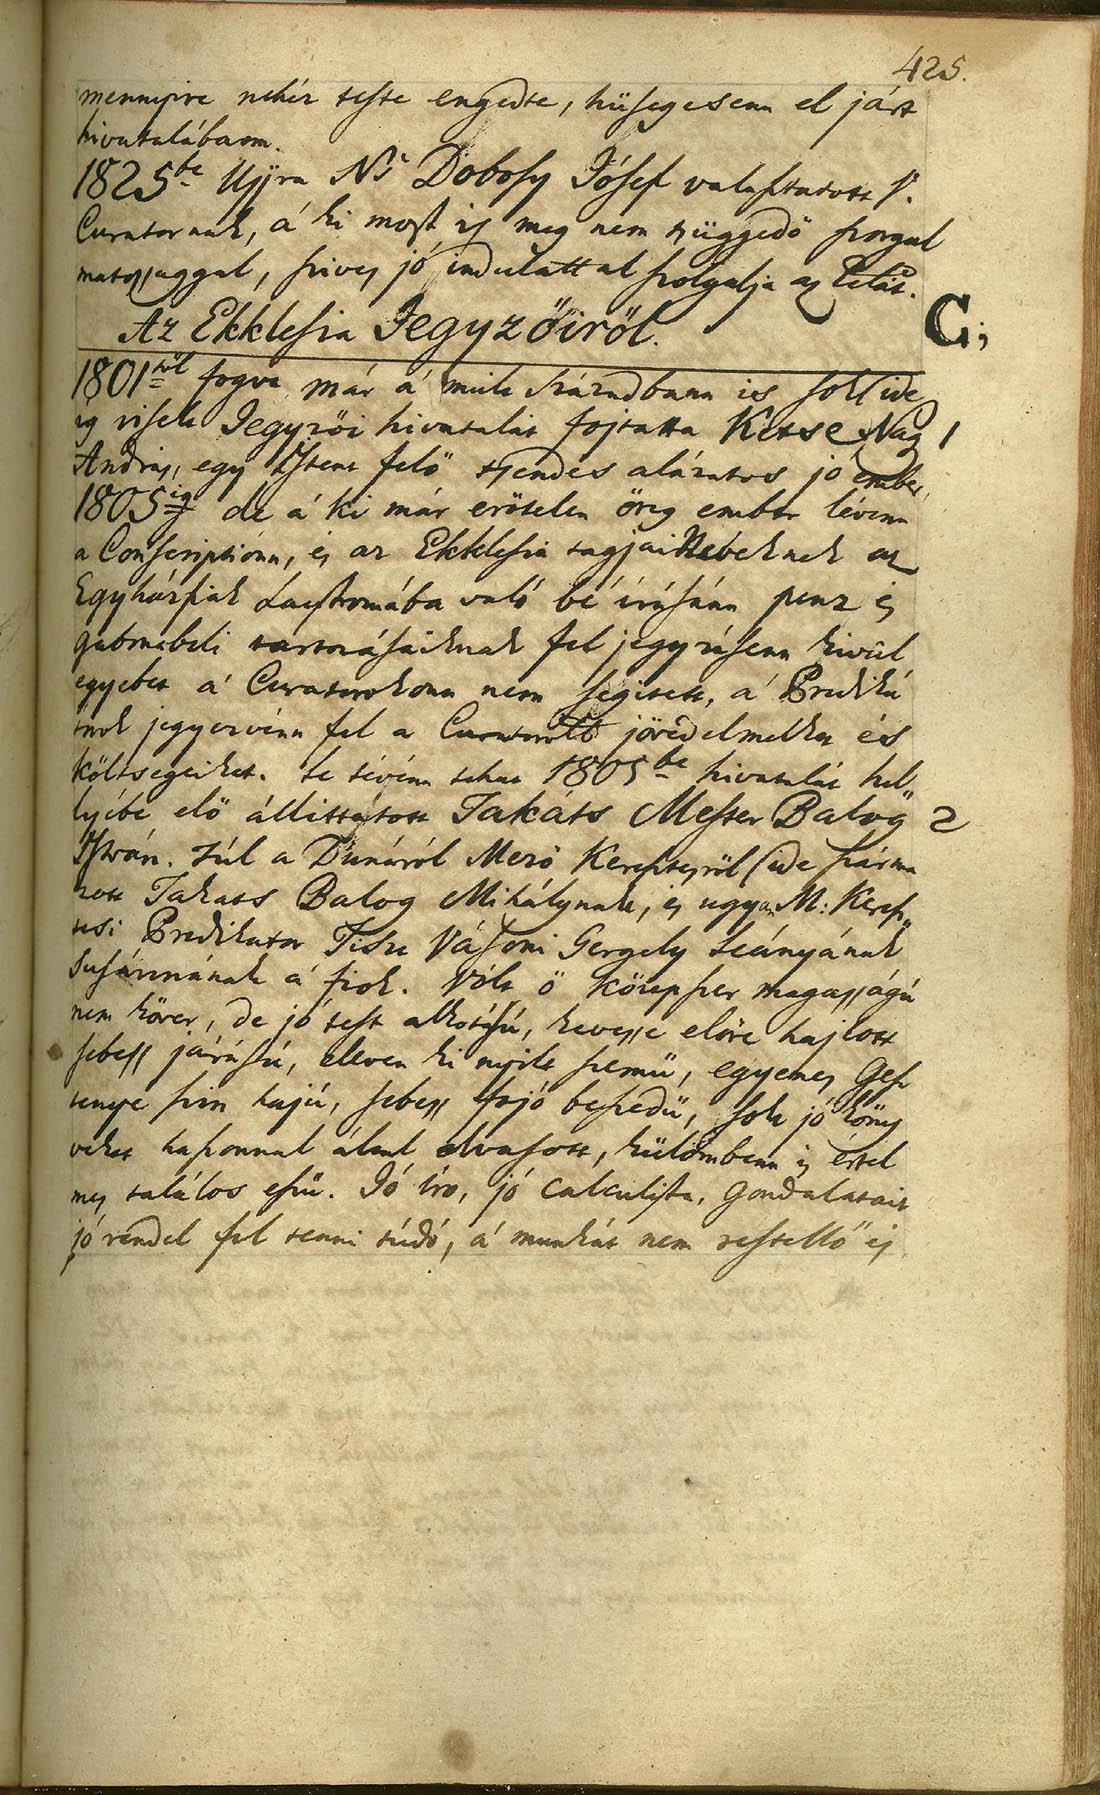 425.
mennyire nehéz teste engedte, hüségesenn el járt
hivatalábann.
1825be Ujjra Ns Dobosy Jósef valasztatott F.
Curatornak, á ki most is meg nem tsüggedö szorgal
matossággal, szives jó indulattal szolgálja az Eclát.
Az Ekklesia Jegyzöiröl. C;
1801töl fogva már á mult Században is sok ide
ig viselt Jegyzöi hivatalát fojtatta Ketse Nagy 1
András, egy Istent félö tsendes alázatos jó ember,
1805ig de á ki már erötelen öreg ember lévénn
a Conscriptiónn, és az Ekklesia tagjai Nebeknek az
Egyházfiak Laistromába való bé irásánn penz és
gabonabeli tartozásaiknak fel jegyzésenn kivül
egyebet á Curatorokonn nem segitett, á Prediká
torok jegyezvénn fel a Curatorok jövedelmeket és
költségeiket. Le tévénn tehát 1805be hivatalát hel„
lyébe elö állittatott Takáts Mester Balog 2
István. túl a Dunáról Mezö Keresztesröl ide szárma
zott Takats Balog Mihálynak, és ugyan M: Keresz„
tesi Predikator Tisze Vásoni Gergely Leányának
Susánnának á fiok. Vólt ö közepszer magasságú
nem kövér, de jó test alkotású, kevessé elöre hajlott
sebess járású, eleven ki nyilt szemü, egyenes Gesz
tenye szin hajú, sebess folyó beszedü, sok jó köny
veket haszonnal által olvasott, külömbenn is értel
mes talalos eszü. Jó iro, jó calculista, Gondolatait
jó rendel fel tenni túdó, á munkát nem restellö és